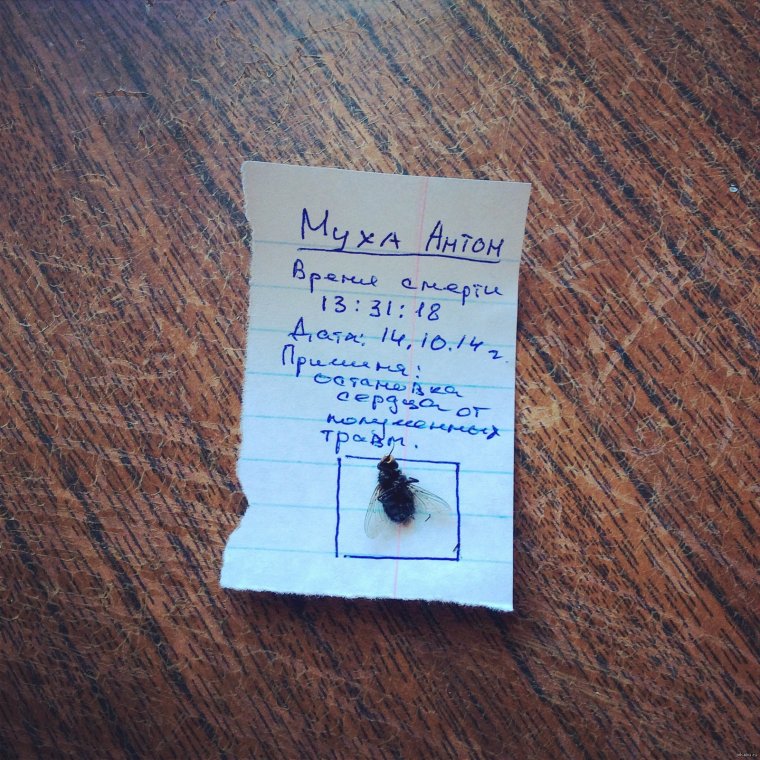 Муха Антон
Время смерти
13:31:18
Дата: 14.10.14 г.
Причина:
остановка
сердца от
полученных
травм.